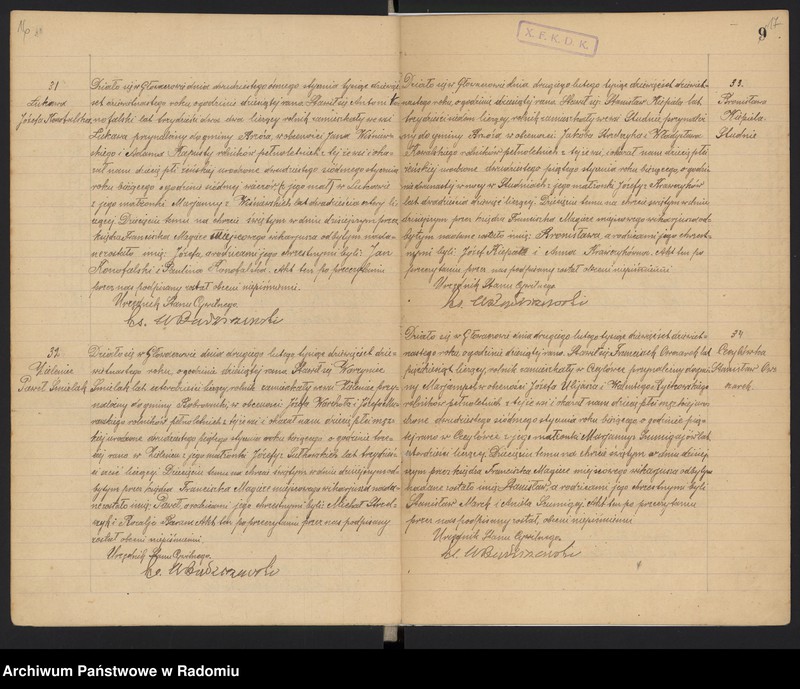 X. F. K. D. K.
9
31
Łukawa
Józefa Konofalska
Działo się w Głowaczowie dnia dwudziestego ósmego stycznia tysiąc dziewięć-
set dziewiętnastego roku o godzinie dziesiątej rana. Stawił się Antoni Ko-
nofalski lat trzydzieści dwa liczący rolnik zamieszkały we wsi
Łukawa przynależny do gminy w obecności Jana Wiśniew-
skiego i Adama rolników pełnoletnich z tejże wsi i oka-
zał nam dziecię płci żeńskiej urodzone dwudziestego siódmego stycznia
roku bieżącego o godzinie siódmej wieczór z jego małż w Łukawie
z jego małżonki Marjanny z Wiśniewskich lat dwadzieścia cztery li-
czącej. Dziecięciu temu na chrzcie świętym w dniu dzisiejszym przez
księdza Franciszka miejscowego wikarjusza odbytym nada-
ne zostało imię: Józefa, a rodzicami jego chrzestnymi byli: Jan
Konofalski i Paulina Konofalska. Akt ten po przeczytaniu
przez nas podpisany został obecni niepiśmienni.
Urzędnik Stanu Cywilnego
Ks.
32
Paweł Smialek
Działo się w Głowaczowie dnia drugiego lutego tysiąc dziewięćset dzie-
więtnastego roku, o godzinie dziesiątej rana. Stawił się Wawrzyniec
Smialek lat czterdzieści liczący rolnik zamieszkały we wsi przy-
należny do gminy w obecności Józefa Warchoła i Józefa
rolników pełnoletnich z tejże wsi i okazał nam dziecię płci męs-
kiej urodzone dwudziestego piątego stycznia roku bieżącego, o godzinie
rano w z jego małżonki Józefy lat trzydzieści
sześć liczącej. Dziecięciu temu na chrzcie świętym w dniu dzisiejszym od-
bytym przez księdza Franciszka miejscowego wikarjusza nada-
ne zostało imię Paweł, a rodzicami jego chrzestnymi byli: Michał
i Rozalja Baran. Akt ten po przeczytaniu przez nas podpisany
został obecni niepiśmienni.
Urzędnik Stanu Cywilnego.
Ks.
33.
Bronisława
Kiepiela
Studnie
Działo się w Głowaczowie dnia drugiego lutego tysiąc dziewięćset dziewięt-
nastego roku, o godzinie dziesiątej rana. Stawił się: Stanisław Kiepiela lat
trzydzieści siedm liczący, rolnik zamieszkały we wsi Studnie, przynależ-
ny do gminy w obecności Jakóba i Władysława
Kowalskiego rolników pełnoletnich z tejże wsi, i okazał nam dziecię płci
żeńskiej urodzone dwudziestego piątego stycznia roku bieżącego, o godzi-
nie dwunastej w nocy w Studniach z jego małżonki Józefy z Krawczyków
lat dwadzieścia dziewięć liczącej. Dziecięciu temu na chrzcie świętym w dniu
dzisiejszym przez księdza Franciszka miejscowego wikarjusza od-
bytym nadane zostało imię: Bronisława a rodzicami jego chrzest-
nymi byli: Józef Kiepiela i Anna Krawczykówna. Akt ten po
przeczytaniu przez nas podpisany został obecni niepiśmienni
Urzędnik Stanu Cywilnego
Ks.
34
Cecylówka
Stanisław
Działo się w Głowaczowie dnia drugiego lutego tysiąc dziewięćset dziewięt-
nastego roku, o godzinie dziesiątej rana. Stawił się Franciszek lat
pięćdziesiąt liczący, rolnik zamieszkały w Cecylówce przynależny do gmi-
ny Marjampol w obecności Józefa i Walentego
rolników pełnoletnich z tejże wsi i okazał nam dziecię płci męzkiej uro-
dzone dwudziestego siódmego stycznia roku bieżącego o godzinie pią-
tej rano w Cecylówce z jego małżonki Marjanny lat
czterdzieści liczącej. Dziecięciu temu na chrzcie świętym w dniu dzisiej-
szym przez księdza Franciszka miejscowego wikarjusza odbytym
nadane zostało imię Stanisław, a rodzicami jego chrzestnymi byli
Stanisław Marek i Aniela Akt ten po przeczytaniu
przez nas podpisany został, obecni niepiśmienni
Urzędnik Stanu Cywilnego.
Ks.
Archiwum Państwowe w Radomiu